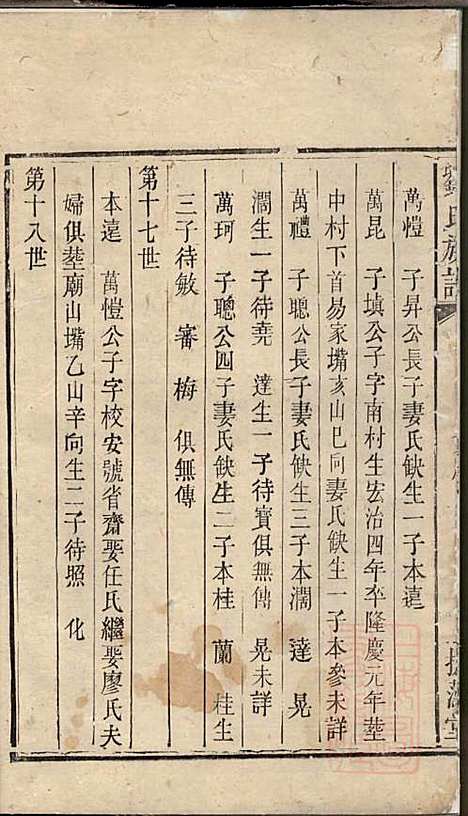 氏族譜
萬愷 子昇公長子妻氏缺生一子本遠
萬昆 子填公子字南村生宏治四年卒隆慶元年塟
中村下首易家嘴亥山巳向妻氏缺生一子本參未詳
萬禮 子聰公長子妻氏缺生三子本濶 達 晃
濶生一子待堯 達生一子待寳俱無傳 晃未詳
萬珂 子聰公四子妻氏缺生二子本桂 蘭 桂生
三子待敏 審 梅 俱無傳
第十七世
本遠 萬愷公子字校安號省齋娶任氏繼娶廖氏夫
婦俱塟廟山嘴乙山辛向生二子待照 化
第十八世